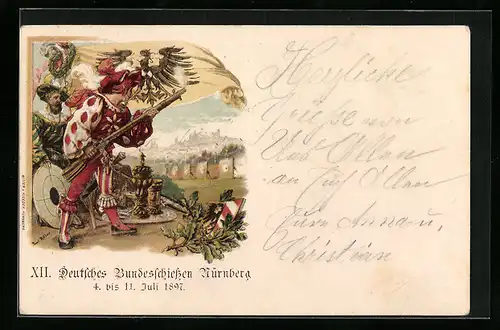 XII. Deutsches Bundesschießen Nürnberg
4. bis 11. Juli 1897.
Herzliche
Grüße von
Uns Allen
an Euch Allen
Eure Anna u.
Christian